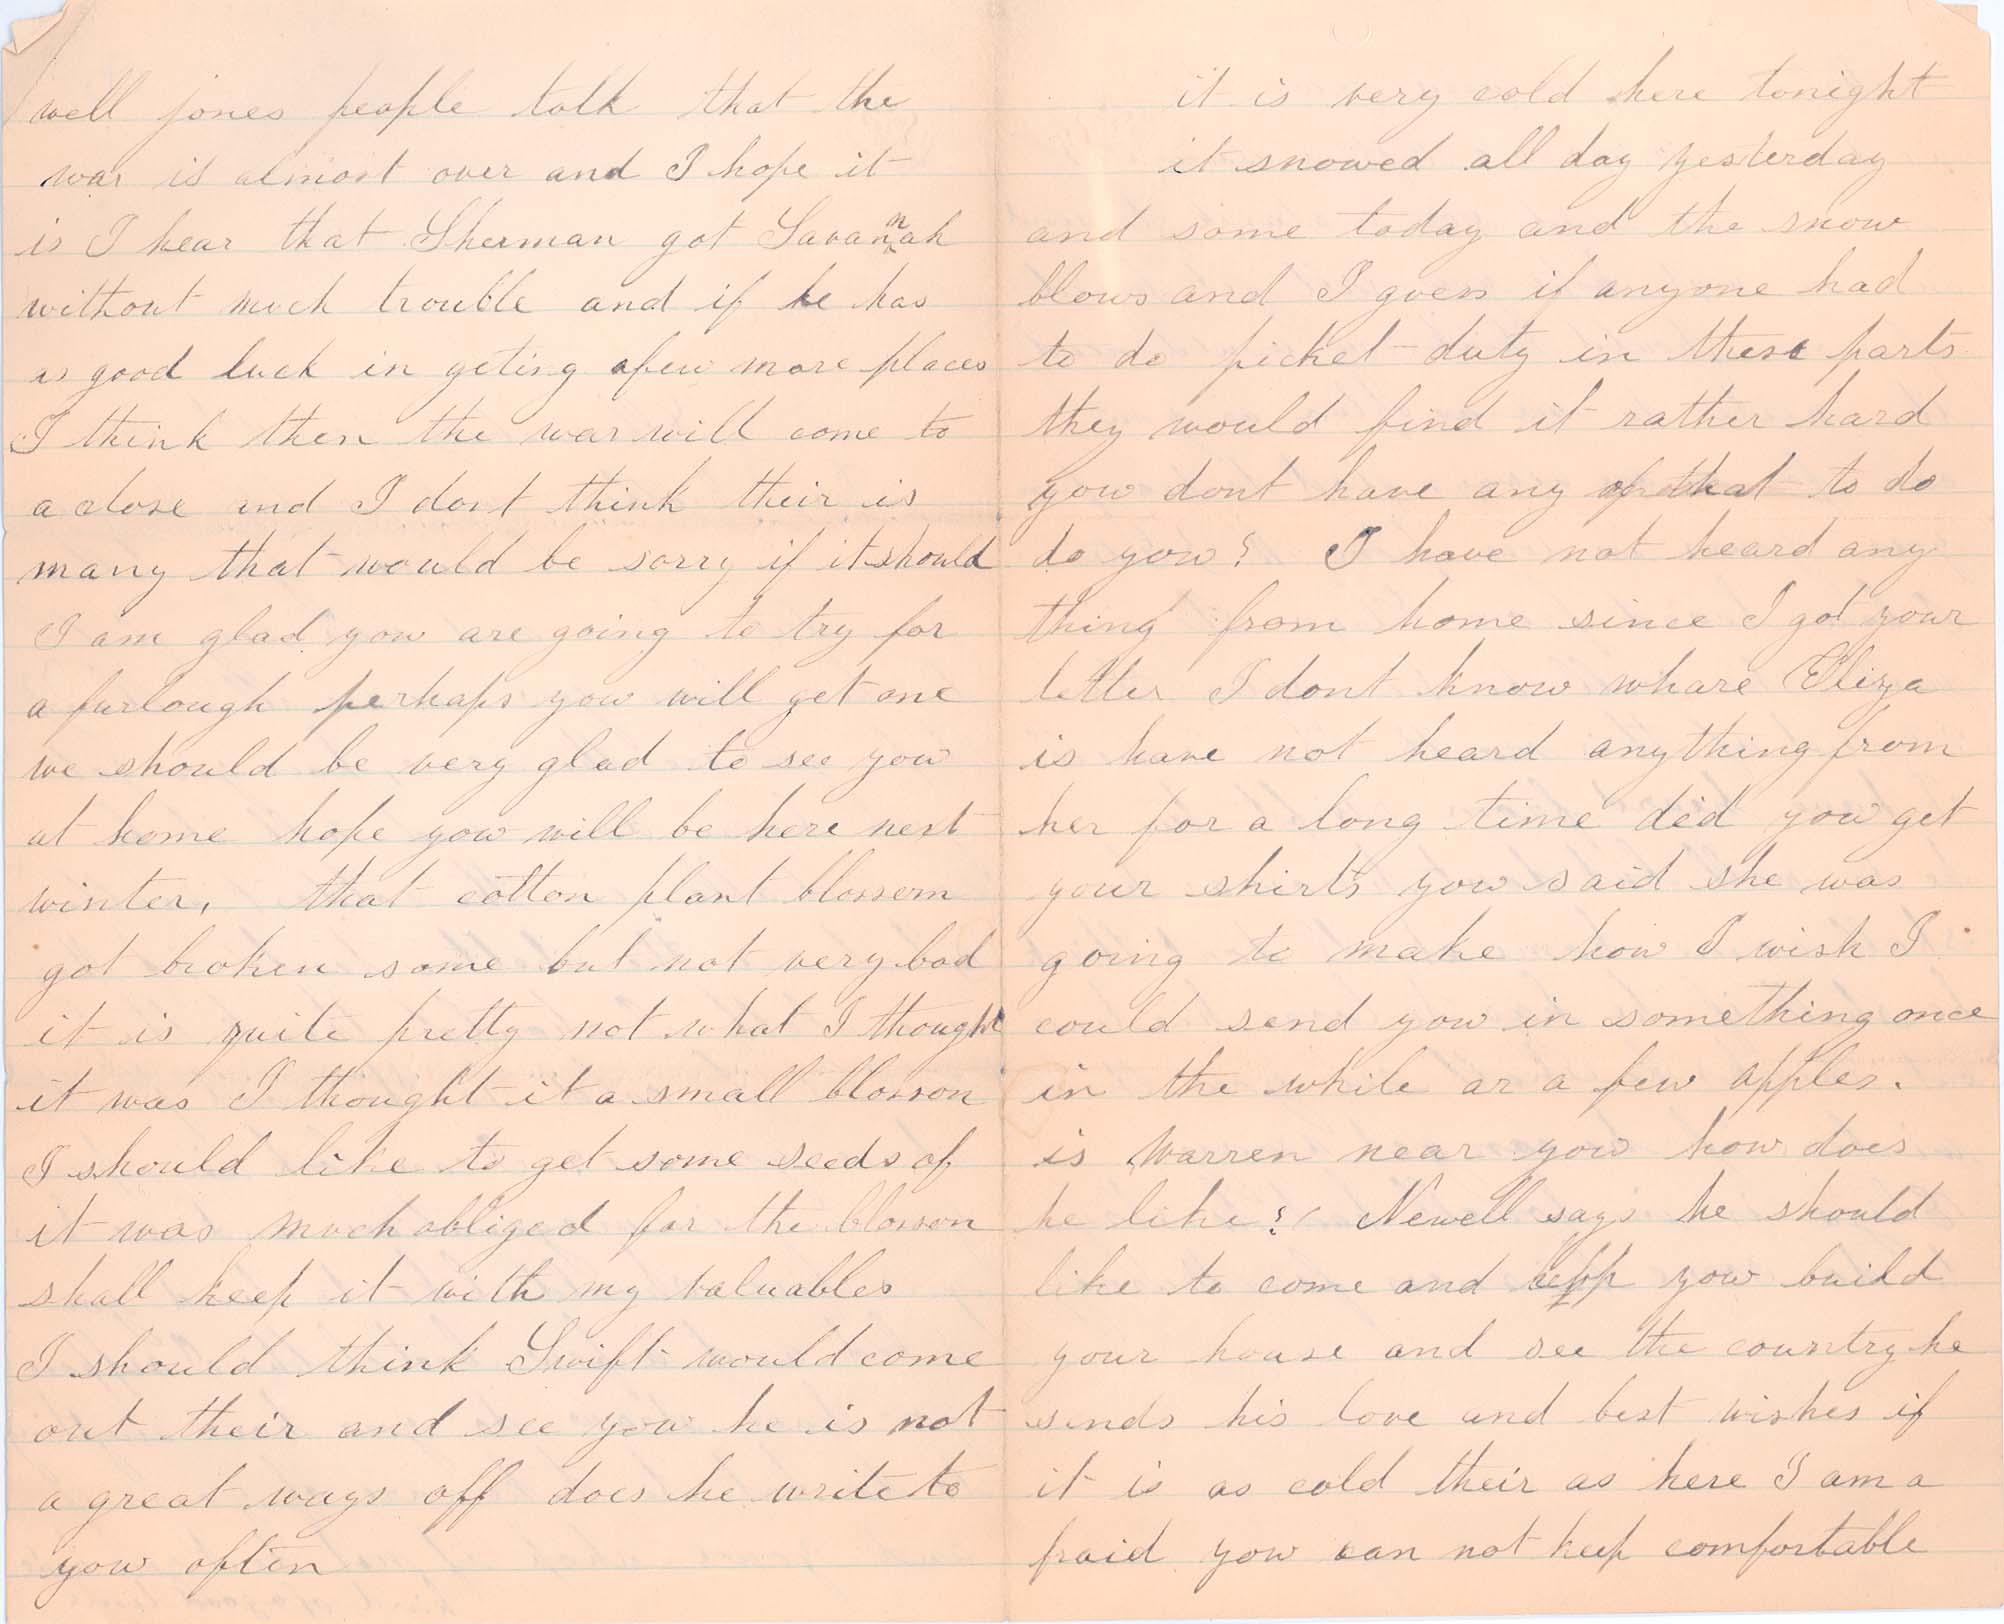 well jones people talk that the
war is almost over and I hope it
is I hear that Sherman got Savannah
without much trouble and if he has
as good luck in geting afew more places
I think then the war will come to
a close and I dont think their is
many that would be sorry if it should
I am glad you are going to try for
a furlough perhaps you will get one
we should be very glad to see you
at home hope you will be here next
winter, that cotton plant blossem
got broken some but not very bad
it is quite pretty not what I thought
it was I thought it a small blosson
I should like to get some seeds of
it was much obliged for the blosson
shall keep it with my valuables
I should think Swift would come
out their and see you he is not
a great ways off does he write to
you often
it is very cold here tonight
it snowed all day yesterday
and some today and the snow
blows and I guess if anyone had
to do picket duty in these parts
they would find it rather hard
you dont have any of that to do
do you? I have not heard any
thing from home since I got your
letter I dont know whare Eliza
is have not heard anything from
her for a long time did you get
your shirts you said she was
going to make how I wish I
could send you in something once
in the while or a few apples.
is Warren near you how does
he like? Newell says he should
like to come and help you build
your house and see the country he
sends his love and best wishes if
it is as cold their as here I am a
fraid you can not keep comfortable